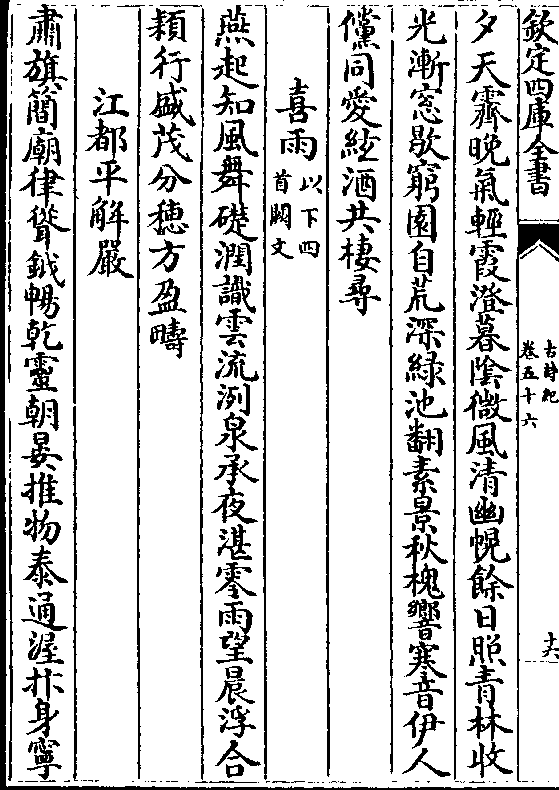 欽定四庫全書
古詩紀
卷五十六
十六
夕天霽晚氣輕霞澄暮陰微風清幽幌餘日照青林收
光漸窓歇窮園自荒深緑池翻素景秋槐響寒音伊人
儻同愛絃酒共棲尋
喜雨以下四首闕文
燕起知風舞礎潤識雲流洌泉承夜湛零雨望晨浮合
穎行盛茂分穗方盈疇
江都平解嚴
肅旗簡廟律聳鉞暢乾靈朝晏推物泰通渥抃身寧